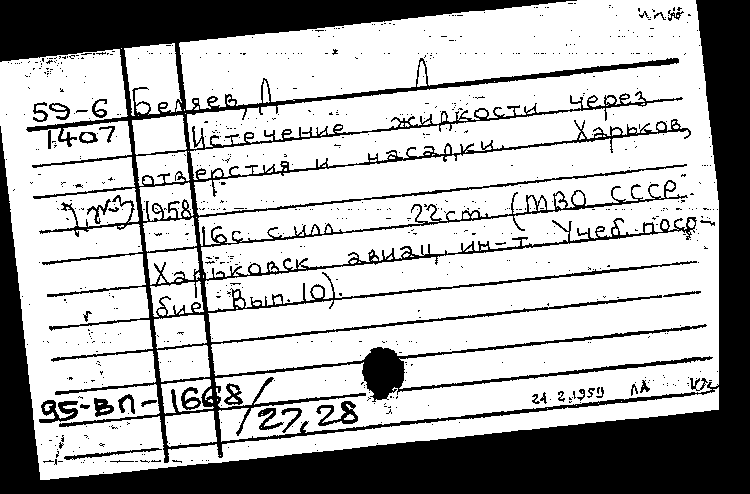 59-6 Беляев, Д Д
1407 Истечение жидкости через
отверстия и насадки. Харьков,
1958
16с. с илл. 22 cm. (МВО СССР.
Харьковск авиац. ин-т. Учеб. посо-
бие. Вып. 10).
95-ВП-1668/27,28
21.2.1959